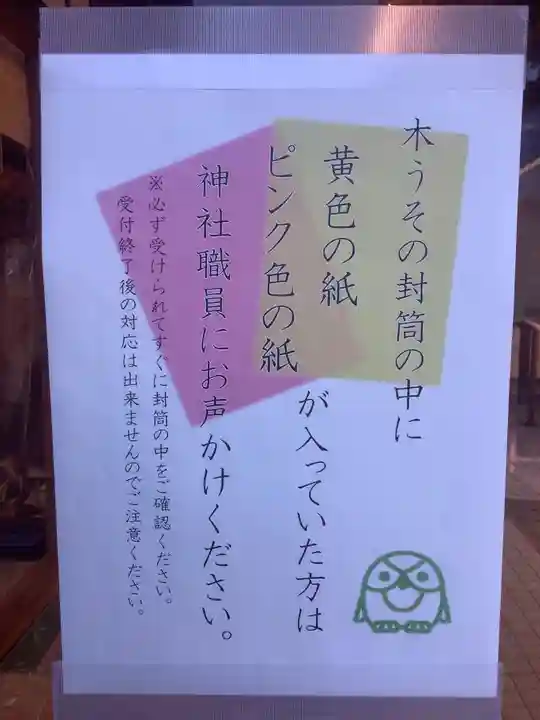 木うその封筒の中に
黄色の紙
ピンク色の紙
が入っていた方は
神社職員にお声かけください。
※必ず受けられてすぐに封筒の中をご確認ください。
受付終了後の対応は出来ませんのでご注意ください。